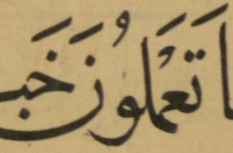 تَعْمَلُونَ خَب